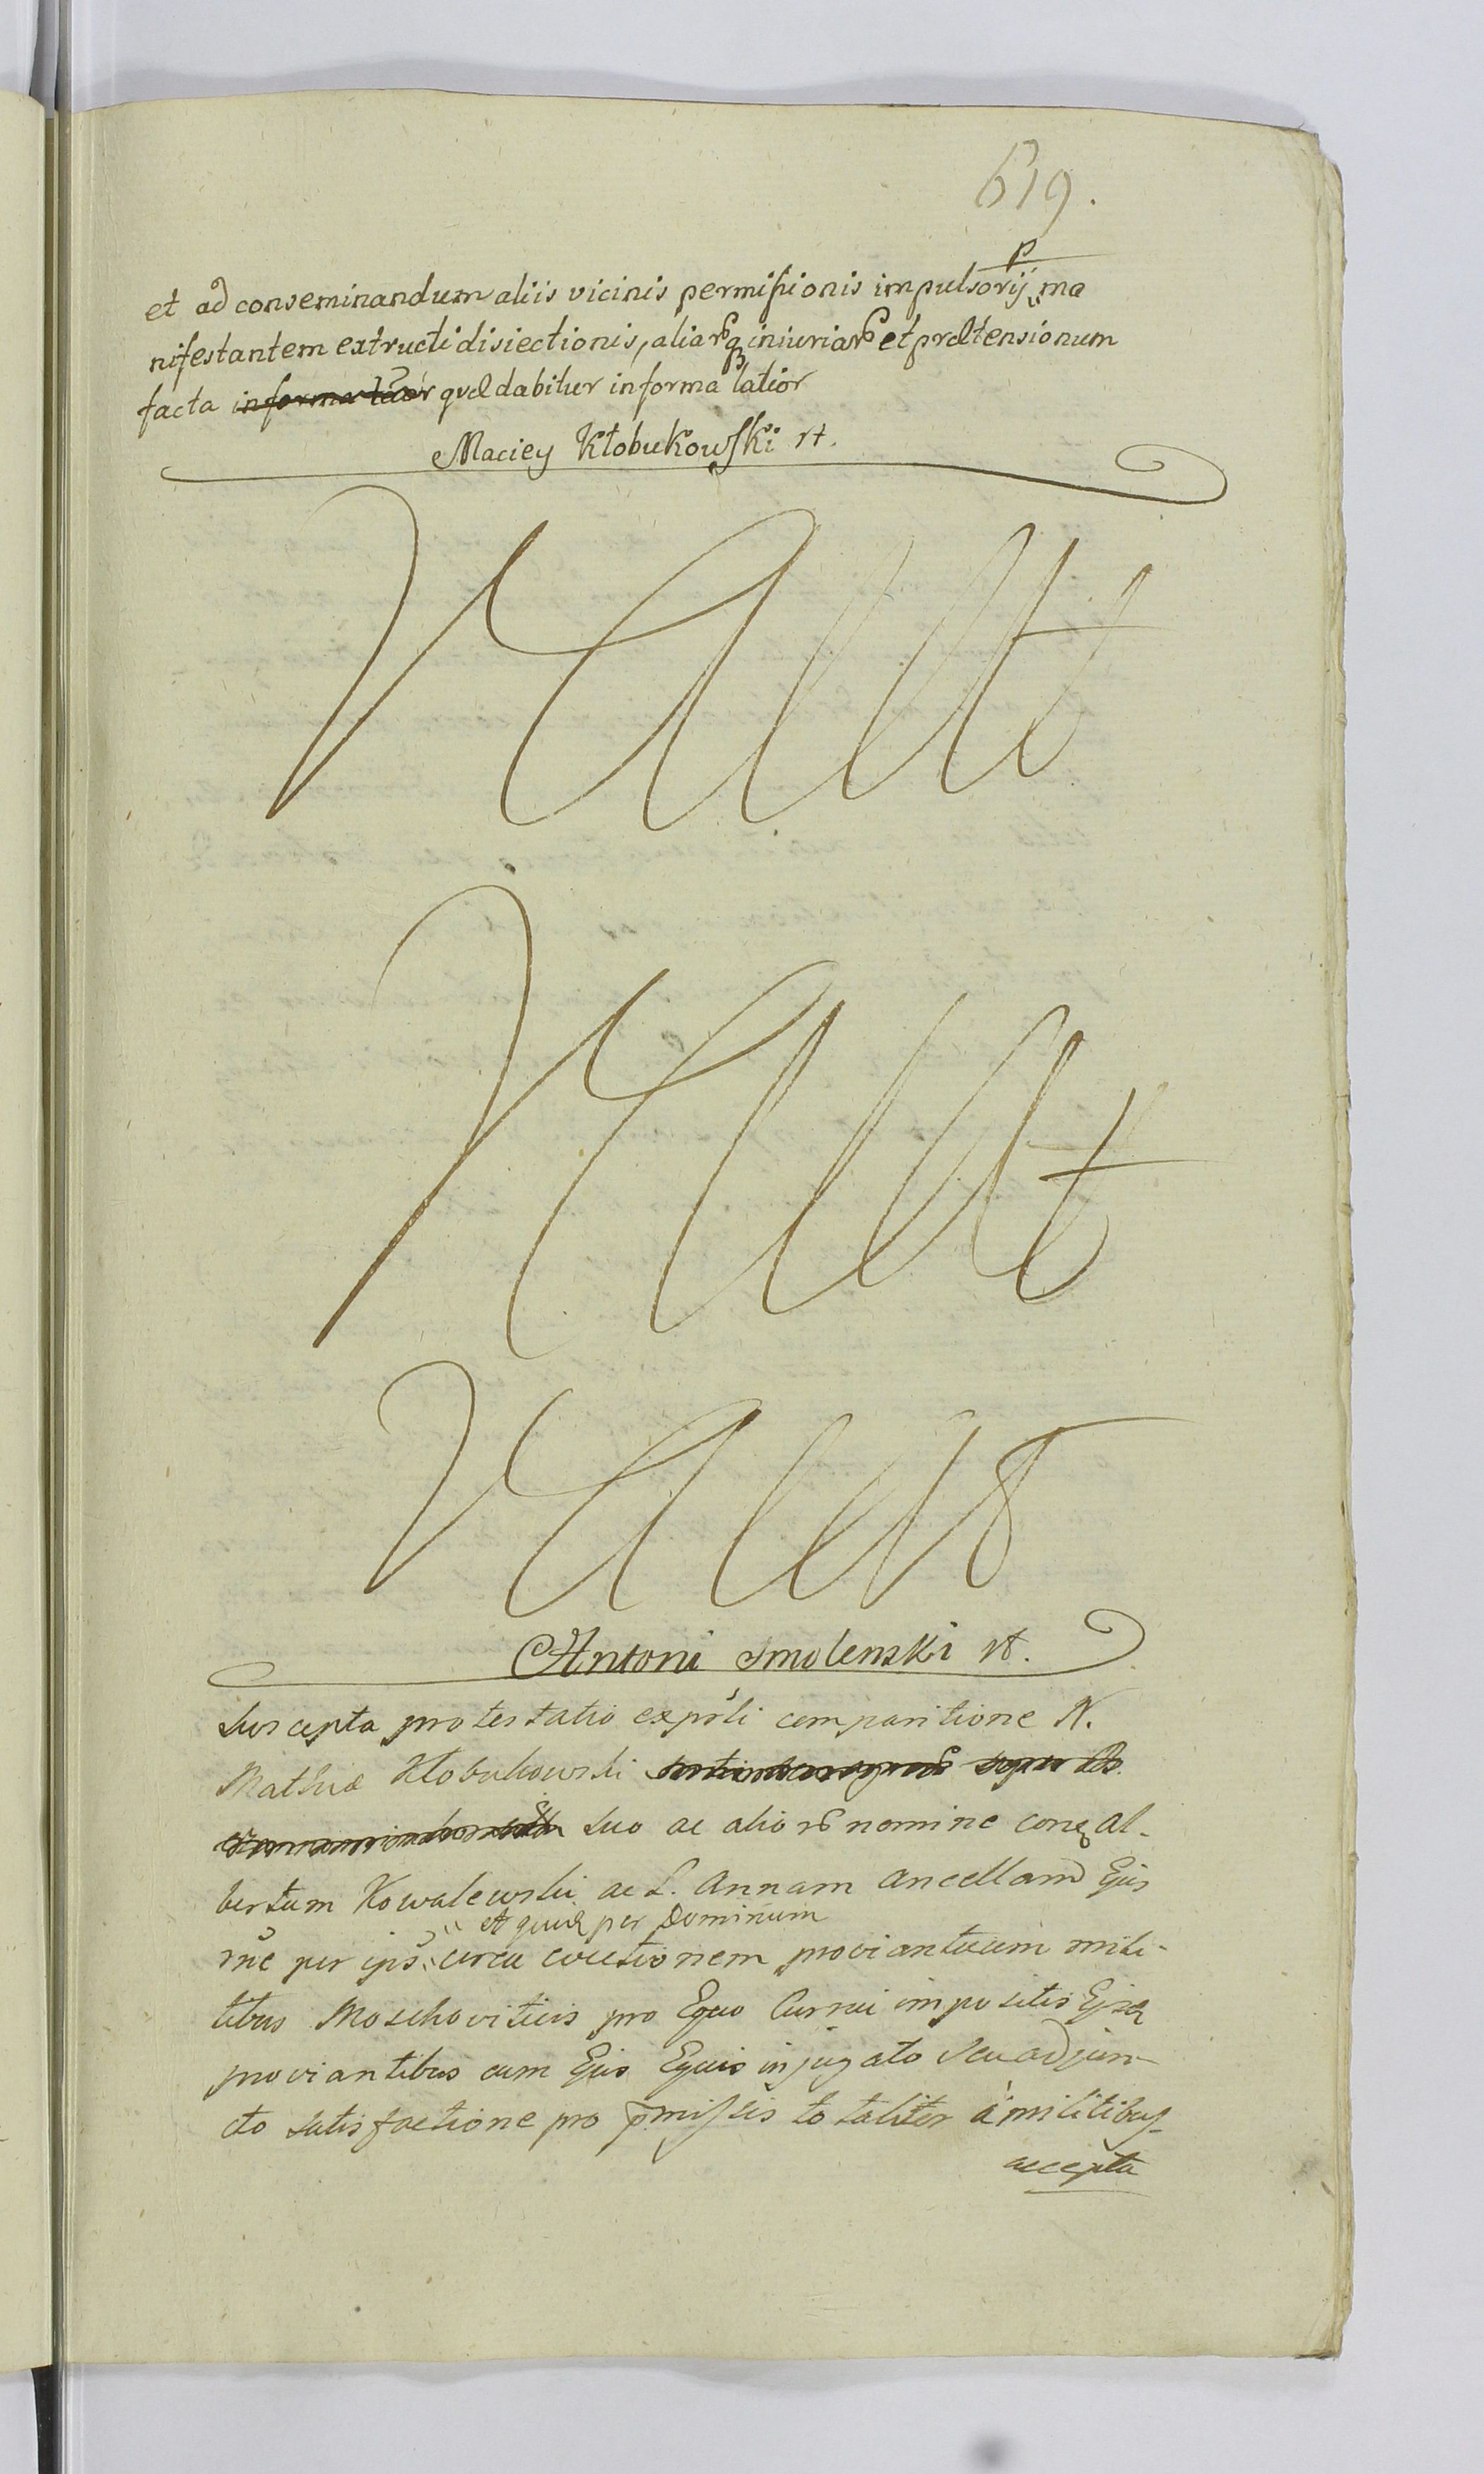 619.
p
et ad conseminandum aliis vicinis permissionis impulsorij ma
nifestantem extructi disiectionis, aliarq iniuriar et praetensionum
facta informa latior quae dabitur informa latior
Maciey Kłobukowski rt.
Antoni Smolenski rt.
Suscepta protestatio ex parti comparitione N.
Mathiae Kłobukowski
suo ac alior nomine conq Al-
bertum Kowalewski ac L. Annam Ancellam Ejus
et quidē per Dominum
rne per ips circa evectionem proviantuum mili-
tibus Moschoviticis pro Equo Currui impositis Ejsdē
proviantibus cum Ejus Equis injugato seu adjun-
cto satisfactione pro pmissis totaliter à militibus
accepta